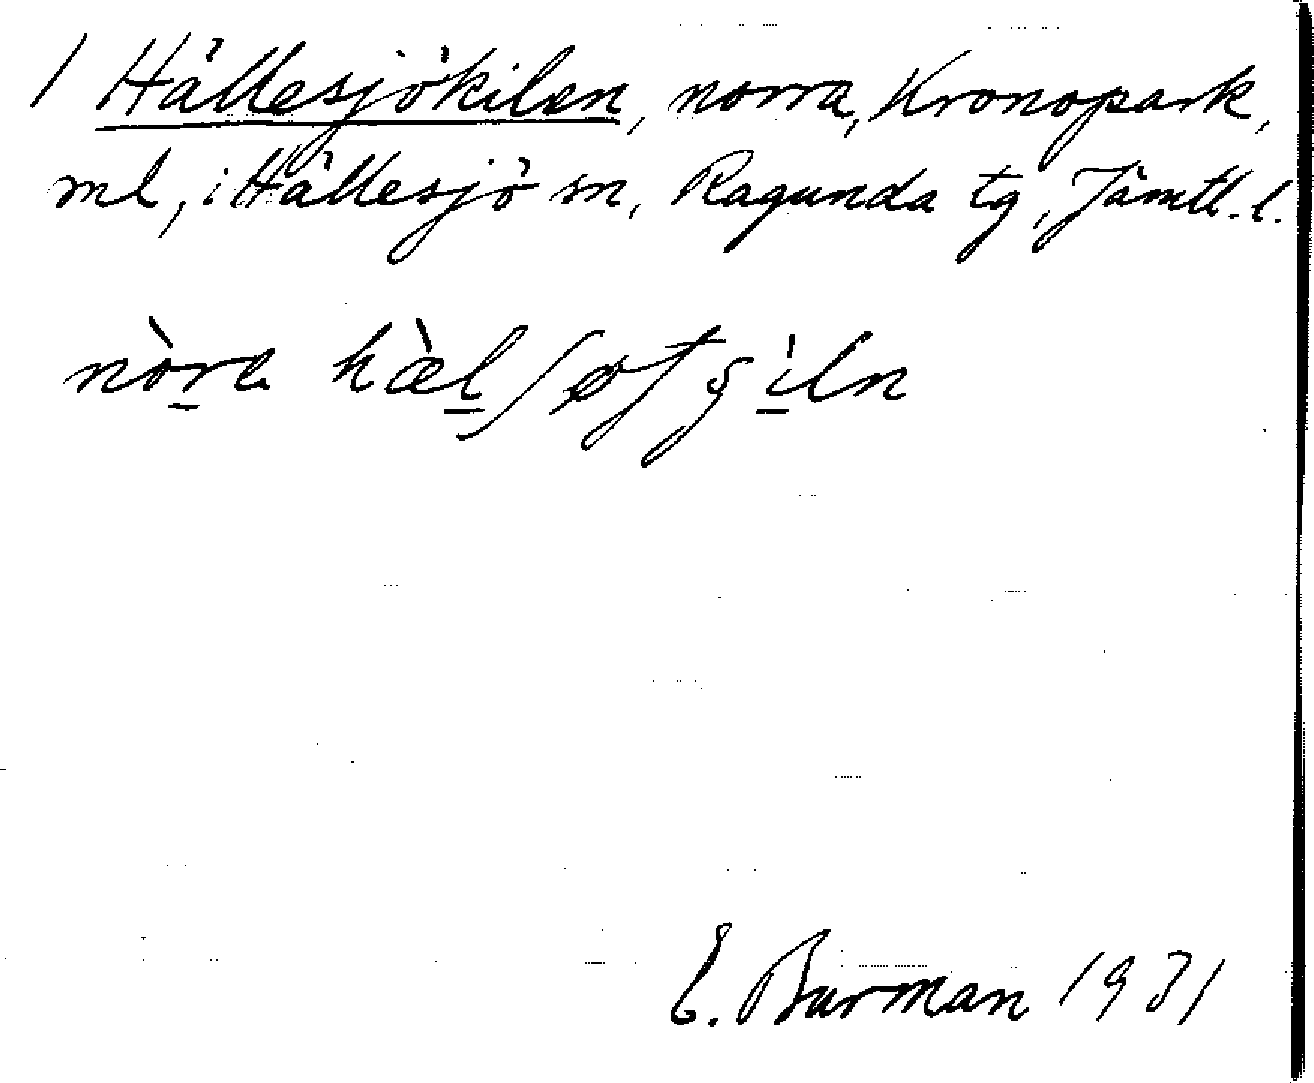 / Hällesjökilen, norra, Kronopark,
ml, i Hällesjö sn, Ragunda tg, Jämtl. l.
nòra
E. Burman 1931